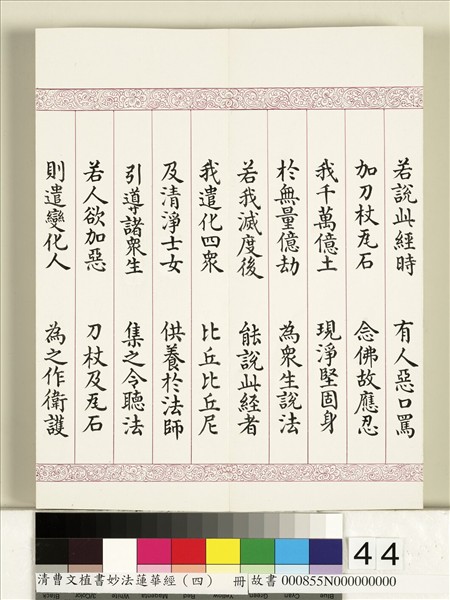 若說此經時 有人惡口罵
加刀杖瓦石 念佛故應忍
我千萬億土 現淨堅固身
於無量億劫 為眾生說法
若我滅度後 能說此經者
我遣化四眾 比丘比丘尼
及清淨士女 供養於法師
引導諸眾生 集之令聽法
若人欲加惡 刀杖及瓦石
則遣變化人 為之作衛護
44
清曹文植書妙法蓮華經（四） 冊 故書 000855N000000000